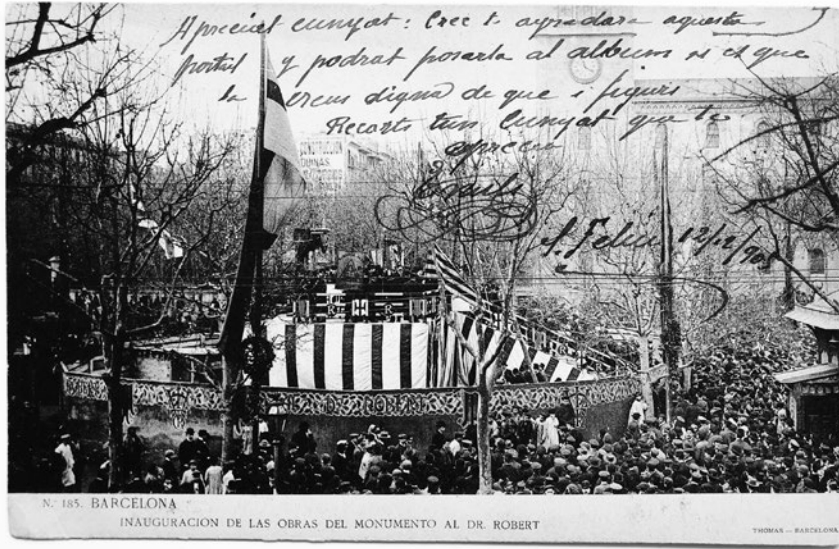 Apreciat cunyat: Crec t. agradara aquesta
postal y podrás posarla al album si es que
la creus digna de que i figuri
Recorts ton cunyat que te
aprecia
Emili
S. Feliu 12/12/903
CONSTRUCCION
D. ROBERT
N.º 185. BARCELONA
INAUGURACION DE LAS OBRAS DEL MONUMENTO AL DR. ROBERT
THOMAS — BARCELONA